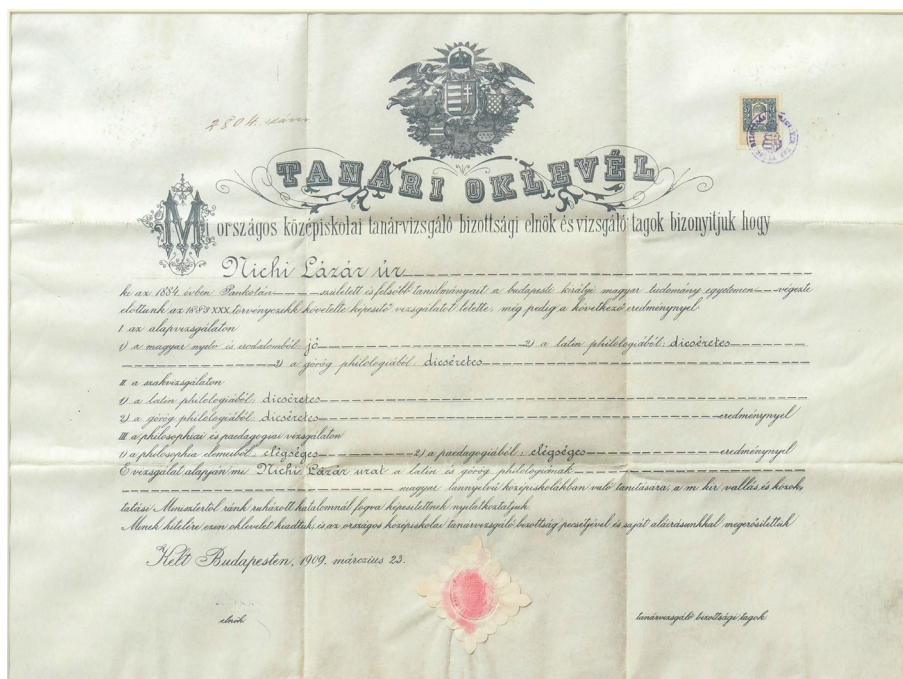 2804. szám
TANÁRI OKLEVÉL
Mi országos középiskolai tanárvizsgáló bizottsági elnök és vizsgáló tagok bizonyítjuk hogy
Nichi Lázár úr
ki az 1884 évben Pankotán született és felsőbb tanulmányait a budapesti királyi magyar tudomány egyetemen végezte
előttünk az 1883 XXX törvényczikk követelte képesítő vizsgálatot letette, még pedig a következő eredménynyel
I. az alapvizsgálaton
1) a magyar nyelv és irodalomból: jó 2) a latin philologiából: dicséretes
2) a görög philologiából: dicséretes
II. a szakvizsgálaton
1) a latin philologiából: dicséretes
2) a görög philologiából: dicséretes eredménynyel
III. a philosophiai és paedagogiai vizsgálaton
1) a philosophia elemeiből: elégséges 2) a paedagogiából: elégséges eredménynyel
E vizsgálat alapján mi Nichi Lázár urat a latin és görög philologiának
magyar tannyelvű középiskolákban való tanítására, a m. kir vallás és közok-
tatási Ministertől ránk ruházott hatalomnál fogva képesítettnek nyilatkoztatjuk
Minek hitelére ezen oklevelet kiadtuk, és az országos középiskolai tanárvizsgáló bizottság pecsétjével és saját aláírásunkkal megerősítettük
Kelt Budapesten, 1909. márczius 23.
elnök tanárvizsgáló bizottsági tagok